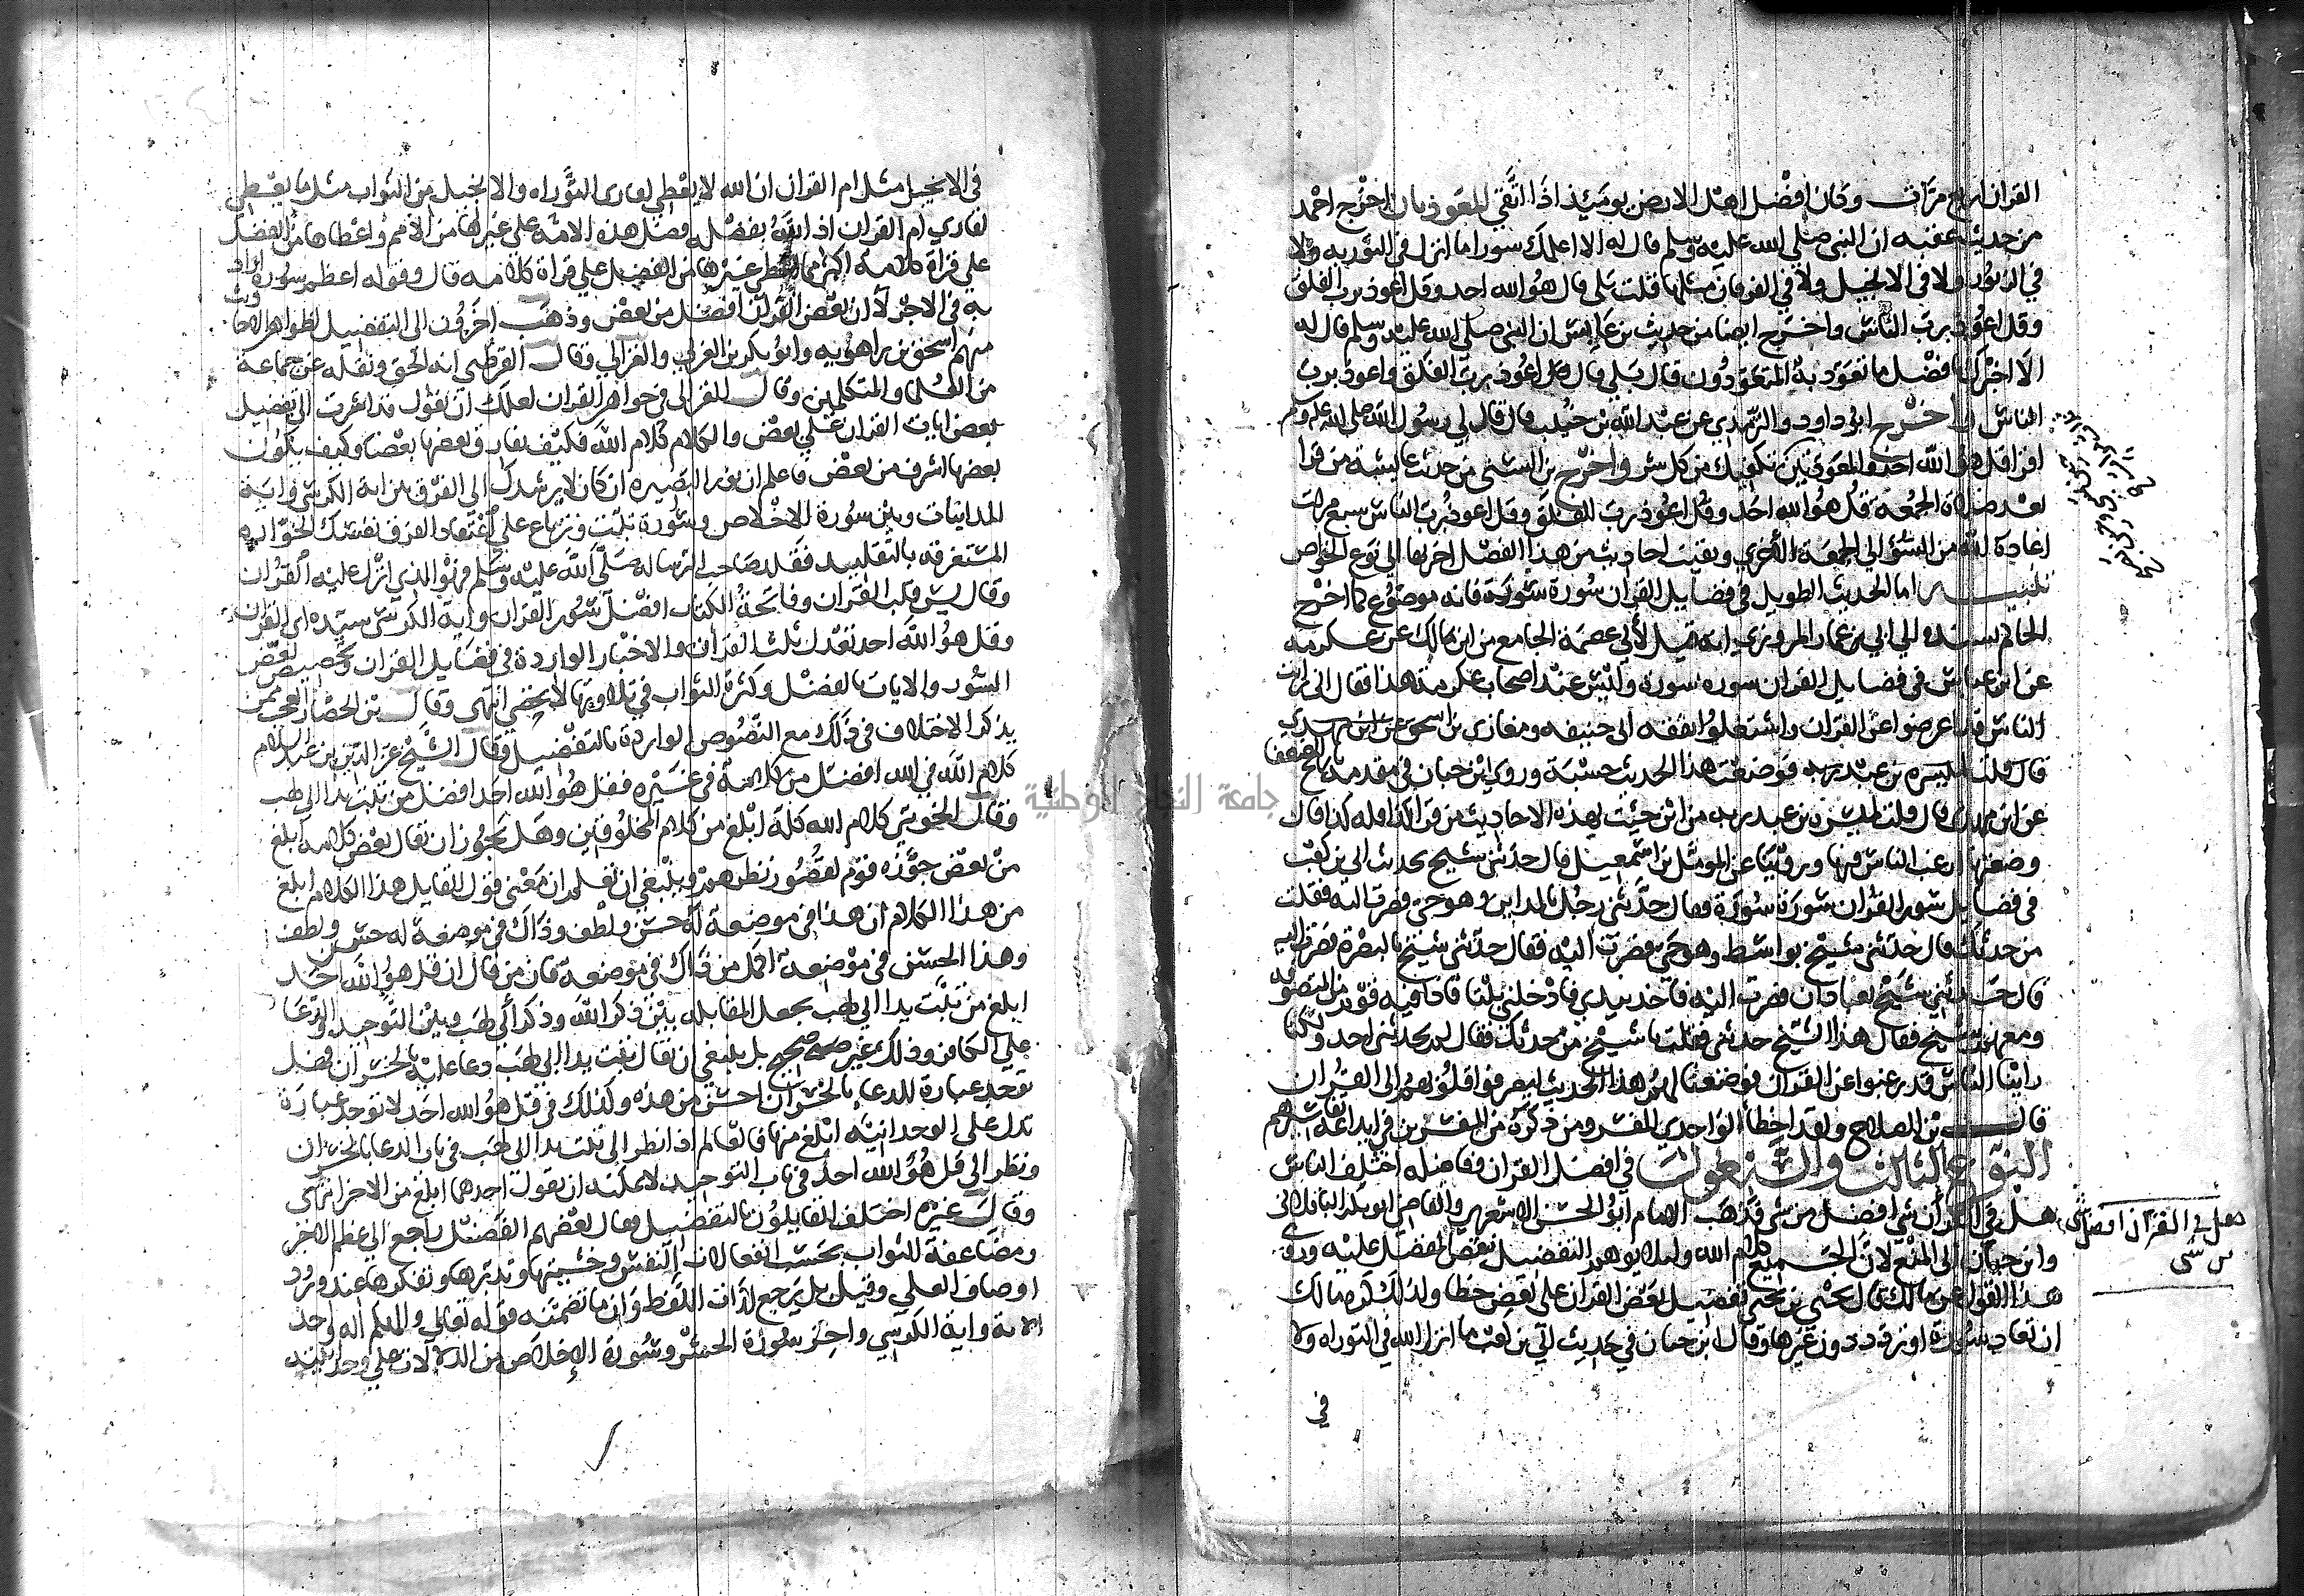 القران اربع مرات وكان افضل اهل الارض يومئذ اذا اتقي المعوذتان اخرج احمد
من حديث عقبه ان النبي صلي الله عليه وسلم قال له الا اعلمك سورا ما انزل في التوريه ولا
في الزبور ولا في الانجيل ولا في الفرقان مثلها قلت بلي قال هو الله احد وقل اعوذ برب الفلق
وقل اعوذ برب الناس واخرج ايضا من حديث بن عابس ان النبي صلي الله عليه وسلم قال له
الا اخبرك بافضل ما تعوذ به المتعوذون قال بلي قال قل اعوذ برب الفلق واعوذ برب
الناس واخرج ابو داود والترمذي عن عبد الله بن حبيب قال قال لي رسول الله صلي الله عليه وسلم
اقرا قل هو الله احد والمعوذتين تكفيك من كل شر واخرج بن السني من حديث عايشة من قرا
بعد صلاة الجمعة قل هو الله احد وقل اعوذ برب الفلق وقل اعوذ برب الناس سبع مرات
اعاده الله من السؤ الي الجمعة الاخري وبقيت احاديث من هذا الفصل اخرتها الي نوع الخواص
تنبيه اما الحديث الطويل في فضايل القران سورة سورة فانه موضوع كما اخرج
الحاكم بسنده الي ابي عمار المروزي انه قيل لأبي عصمة الجامع من اين لك عن عكرمه
عن ابن عباس في فضايل القران سوره سورة وليس عند اصحاب عكرمة هذا فقال اني رايت
الناس قد اعرضوا عن القران واشتغلوا بفقه ابي حنيفه ومغازي بن اسحق
فوضعت هذا الحديث حسبة وروي ابن حبان في مقدمة تاريخ الضعفا
عن ابن مهدي قال قلت لميسرة بن عبد ربه من اين جيت بهذه الاحاديث من قرا كذا فله كذا قال
وضعتها ارغب الناس فيها وروينا عن المومل بن اسمعيل قال حدثني شيخ بحديث ابي بن كعب
في فضايل سور القران سورة سورة فقال حدثني رجل بالمداين وهو حي فصرت اليه فقلت
من حدثك قال حدثني شيخ بواسط وهو حي فصرت اليه فقال حدثني شيخ بالبصرة فصرت اليه
قال حدثني شيخ بعبادان فصرت اليه فاخذ بيدي فادخلني بيتا فاذا فيه قوم من المتصوفه
ومعهم شيخ فقال هذا الشيخ حدثني فقلت يا شيخ من حدثك فقال لم يحدثني احد ولكنا
راينا الناس قد رغبوا عن القران فوضعنا لهم هذا الحديث ليصرفوا قلوبهم الي القران
قال بن الصلاح ولقد اخطأ الواحدي المفسر ومن ذكره من المفسرين في ايداعه تفاسيرهم
النوع الثالث والسبعون في افضل القران وفاضله اختلف الناس
هل في القران شي افضل من شي فذهب الامام ابو الحسن الاشعري والقاضي ابو بكر الباقلاني
وابن حبان الي المنع لان الجميع كلام الله وليلا يوهم التفضيل نقص المفضل عليه وروي
هذا القول عن مالك قال يحيي بن يحيي تفضيل بعض القران علي بعض خطا ولذلك كره مالك
ان تعاد سورة او تردد دون غيرها وقال ابن حبان في حديث ابي بن كعب ما انزل الله في التوراه ولا
في
هل في القران افضل
من شي
في الانجيل مثل ام القران ان الله لا يعطي لقارى التوراه والانجيل من الثواب مثل ما يعطي
لقاري ام القران اذ الله بفضله فضل هذه الامة علي غيرها من الامم واعطاها من الفضل
علي قراة كلامه اكثر مما اعطي غيرها من الفضل علي قراة كلامه قال وقوله اعظم سورة اراد
به في الاجر لا ان بعض القران افضل من بعض وذهب اخرون الي التفضيل لظواهر الاحاديث
منهم اسحق بن راهويه وابو بكر بن العربي والغزالي وقال القرطبي انه الحق ونقله عن جماعة
من العلما والمتكلمين وقال الغزالي في جواهر القران لعلك ان تقول قد اشرت الي تفضيل
بعض ايات القران علي بعض والكلام كلام الله فكيف يفارق بعضها بعضا وكيف يكون
بعضها اشرف من بعض فاعلم ان نور البصيره ان كان لا يرشدك الي الفرق بين اية الكرسي واية
المداينات وبين سورة الاخلاص وسورة تبت وترتاع علي اعتقاد الفرق نفسك الخواره
المستغرقه بالتقليد فقلد صاحب الرساله صلي الله عليه وسلم فهو الذي انزل عليه القران
وقال يس قلب القران وفاتحة الكتاب افضل سور القران واية الكرسي سيده اي القران
وقل هو الله احد تعدل ثلث القران والاخبار الواردة في فضايل القران وتخصيص بعض
السور والايات بالفضل وكثرة الثواب في تلاوتها لا يحصي انتهي وقال بن الحصار العجب ممن
يذكر الاختلاف في ذلك مع النصوص الواردة بالتفضيل وقال الشيخ عز الدين بن عبد السلام
كلام الله في الله افضل من كلامه في غيره فقل هو الله احد افضل من تبت يدا ابي لهب
وقال الخويي كلام الله كله ابلغ من كلام المخلوقين وهل يجوز ان يقال بعض كلامه ابلغ
من بعض جوزه قوم لقصور نظرهم وينبغي ان تعلم ان معني قول القايل هذا الكلام ابلغ
من هذا الكلام ان هذا في موضعه له حسن ولطف وذاك في موضعه له حسن ولطف
وهذا الحسن في موضعه اكمل من ذاك في موضعه فان من قال ان قل هو الله احد
ابلغ من تبت يدا ابي لهب يجعل المقابله بين ذكر الله وذكر أبي لهب وبين التوحيد والدعا
علي الكافر وذلك غير صحيح بل ينبغي ان يقال تبت يدا ابي لهب دعا عليه بالخسران فهل
توجد عبارة للدعاء بالخسران احسن من هذه وكذلك في قل هو الله احد لا توجد عبارة
تدل علي الوحدانيه ابلغ منها فالعالم اذا نظر الي تبت يدا ابي لهب في باب الدعا بالخسران
ونظر الي قل هو الله احد في باب التوحيد لا يمكنه ان يقول احدهما ابلغ من الاخر انتهي
وقال غيره اختلف القايلون بالتفضيل فقال بعضهم الفضل راجع الي عظم الاجر
ومضاعفة الثواب بحسب انفعالات النفس وخشيتها وتدبرها وتفكرها عند ورود
اوصاف العلي وقيل بل يرجع لذات اللفظ وان ما تضمنه قوله تعالي والهكم اله واحد
الاية واية الكرسي واخر سورة الحشر وسورة الإخلاص من الدلالات علي وحدانيته